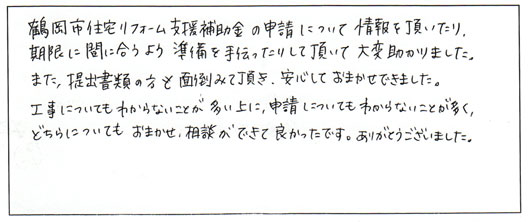 鶴岡市住宅リフォーム支援補助金の申請について情報を頂いたり、
期限に間に合うよう準備を手伝ったりして頂いて大変助かりました。
また、提出書類の方も面倒みて頂き、安心しておまかせできました。
工事についてもわからないことが多い上に、申請についてもわからないことが多く、
どちらについてもおまかせ、相談ができて良かったです。ありがとうございました。